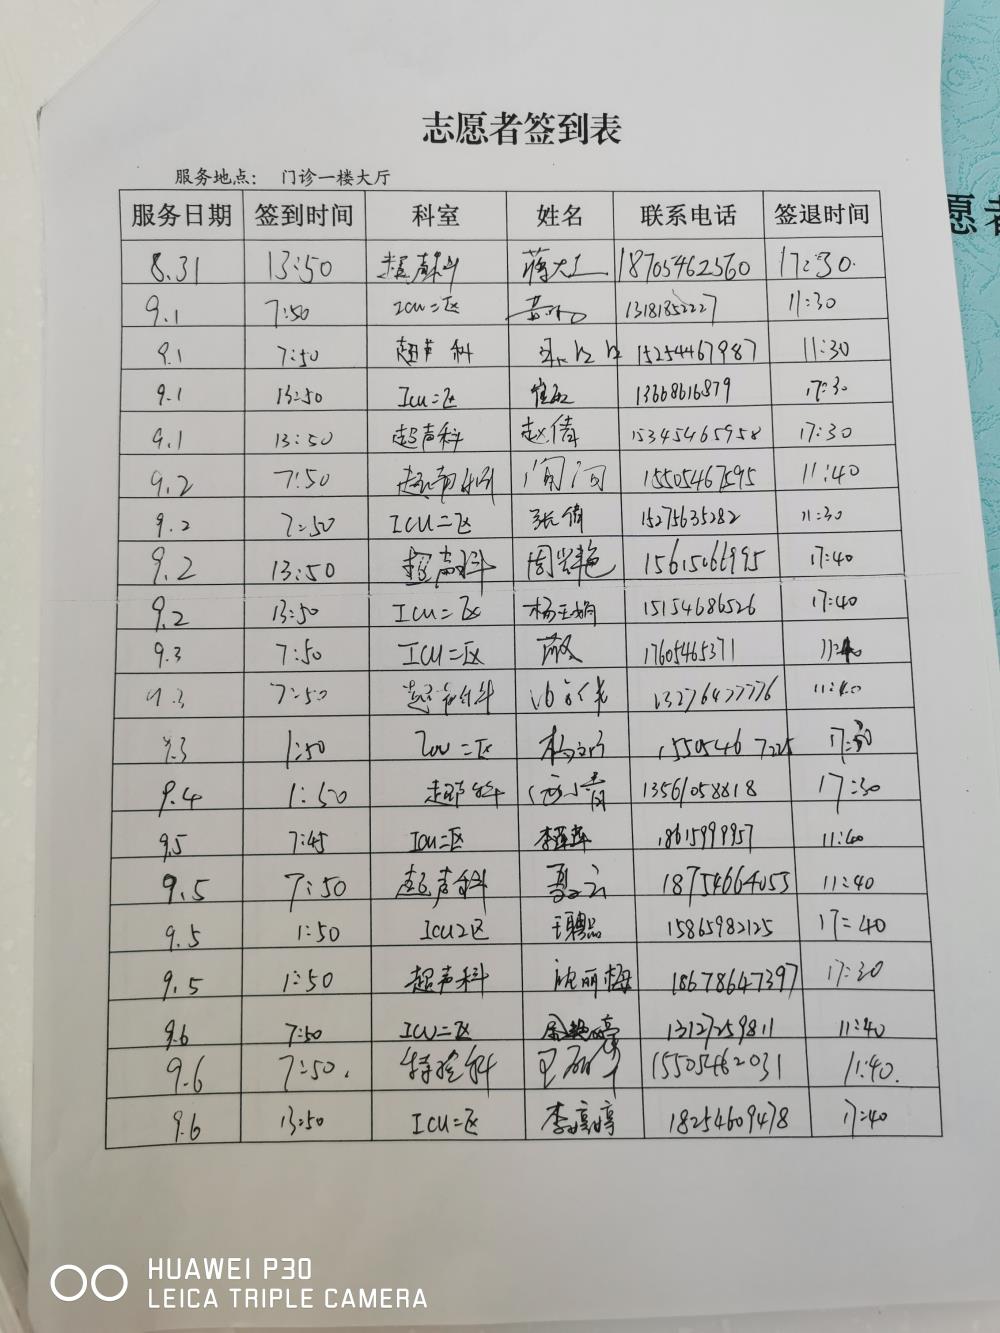 志愿者签到表
服务地点： 门诊一楼大厅
服务日期 签到时间 科室 姓名 联系电话 签退时间
8.31 13:50 超声科 蒋大上 18705462560 17:30.
9.1 7:50 ICU二区 13181852227 11:30
9.1 7:50 超声科 15254467987 11:30
9.1 13:50 ICU二区 13668616879 17:30
9.1 13:50 超声科 赵倩 15345465958 17:30
9.2 7:50 超声科 15505467595 11:40
9.2 7:50 ICU二区 张倩 15275635282 11:30
9.2 13:50 超声科 周兴艳 15615066995 17:40
9.2 13:50 ICU二区 杨玉娟 15154686526 17:40
9.3 7:50 ICU二区 17605465371 11:40
9.3 7:50 超声科 13276477776 11:40
9.3 1:50 ICU二区 15505467225 17:30
9.4 1:50 超声科 13561058818 17:30
9.5 7:45 ICU二区 李萍萍 18615999957 11:40
9.5 7:50 超声科 聂云 18754664053 11:40
9.5 1:50 ICU2区 王聘品 15865982125 17:40
9.5 1:50 超声科 倪丽梅 18678647397 17:30
9.6 7:50 ICU二区 13127259811 11:40
9.6 7:50. 特检科 15505462031 11:40.
9.6 13:50 ICU二区 李婷婷 18254609478 17:40
愿者
HUAWEI P30
LEICA TRIPLE CAMERA